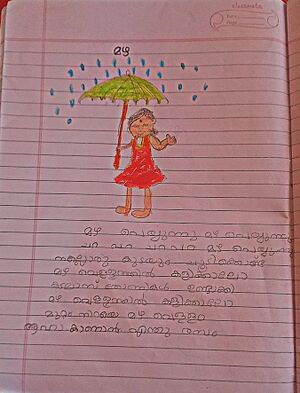 മഴ
മഴ പെയ്യുന്നു മഴ പെയ്യുന്നു
ചറ പറ ചറ പറ മഴ പെയ്യുന്നു
നല്ലൊരു കുടയും ചൂടിക്കൊണ്ട്
മഴ വെള്ളത്തിൽ കളിക്കാലോ
കടലാസ് തോണികൾ ഉണ്ടാക്കി
മഴ വെള്ളത്തിൽ കളിക്കാലോ
മുറ്റം നിറയെ മഴ വെള്ളം
ആഹാ കാണാൻ എന്തു രസം